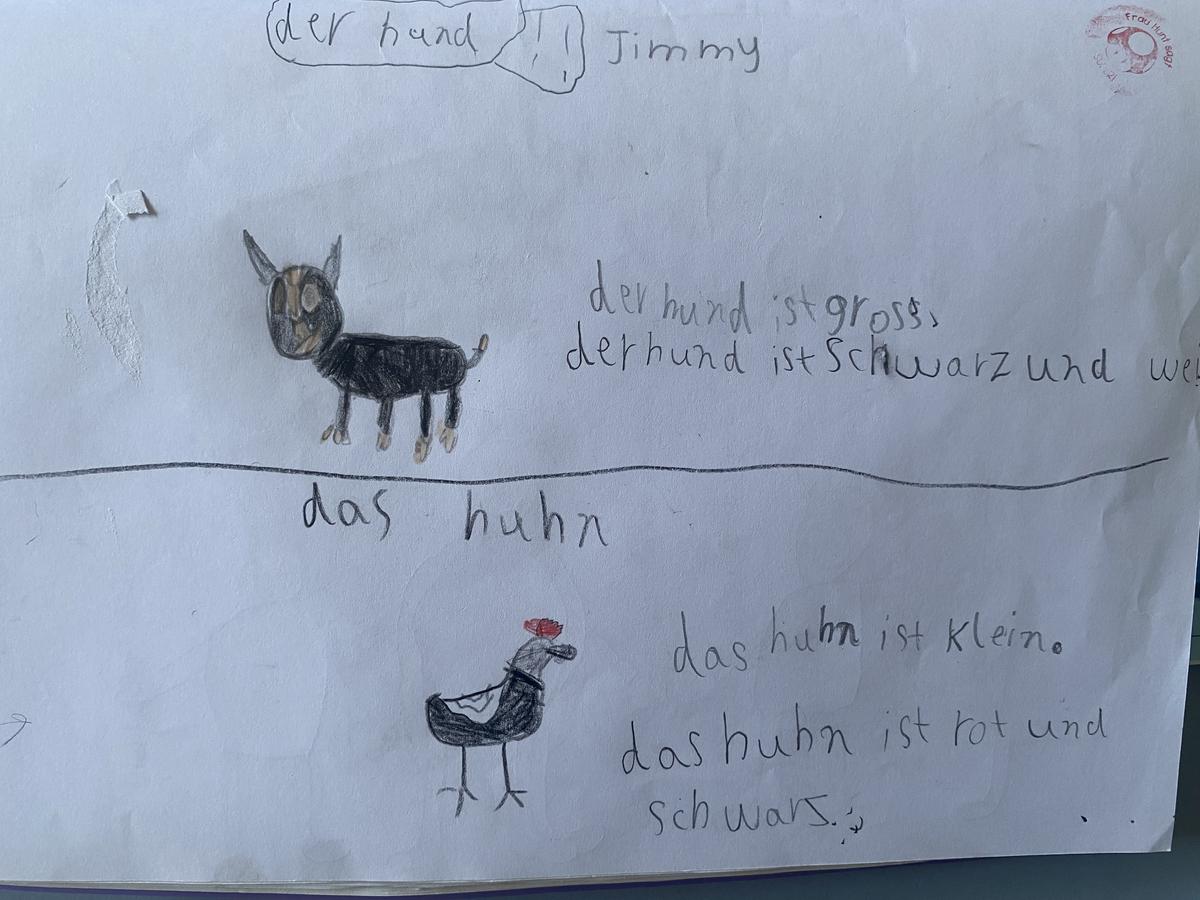 der hund !! Jimmy
Frau Hunt sagt
der hund ist gross.
der hund ist schwarz und
das huhn
das huhn ist klein.
das huhn ist rot und
schwarz.